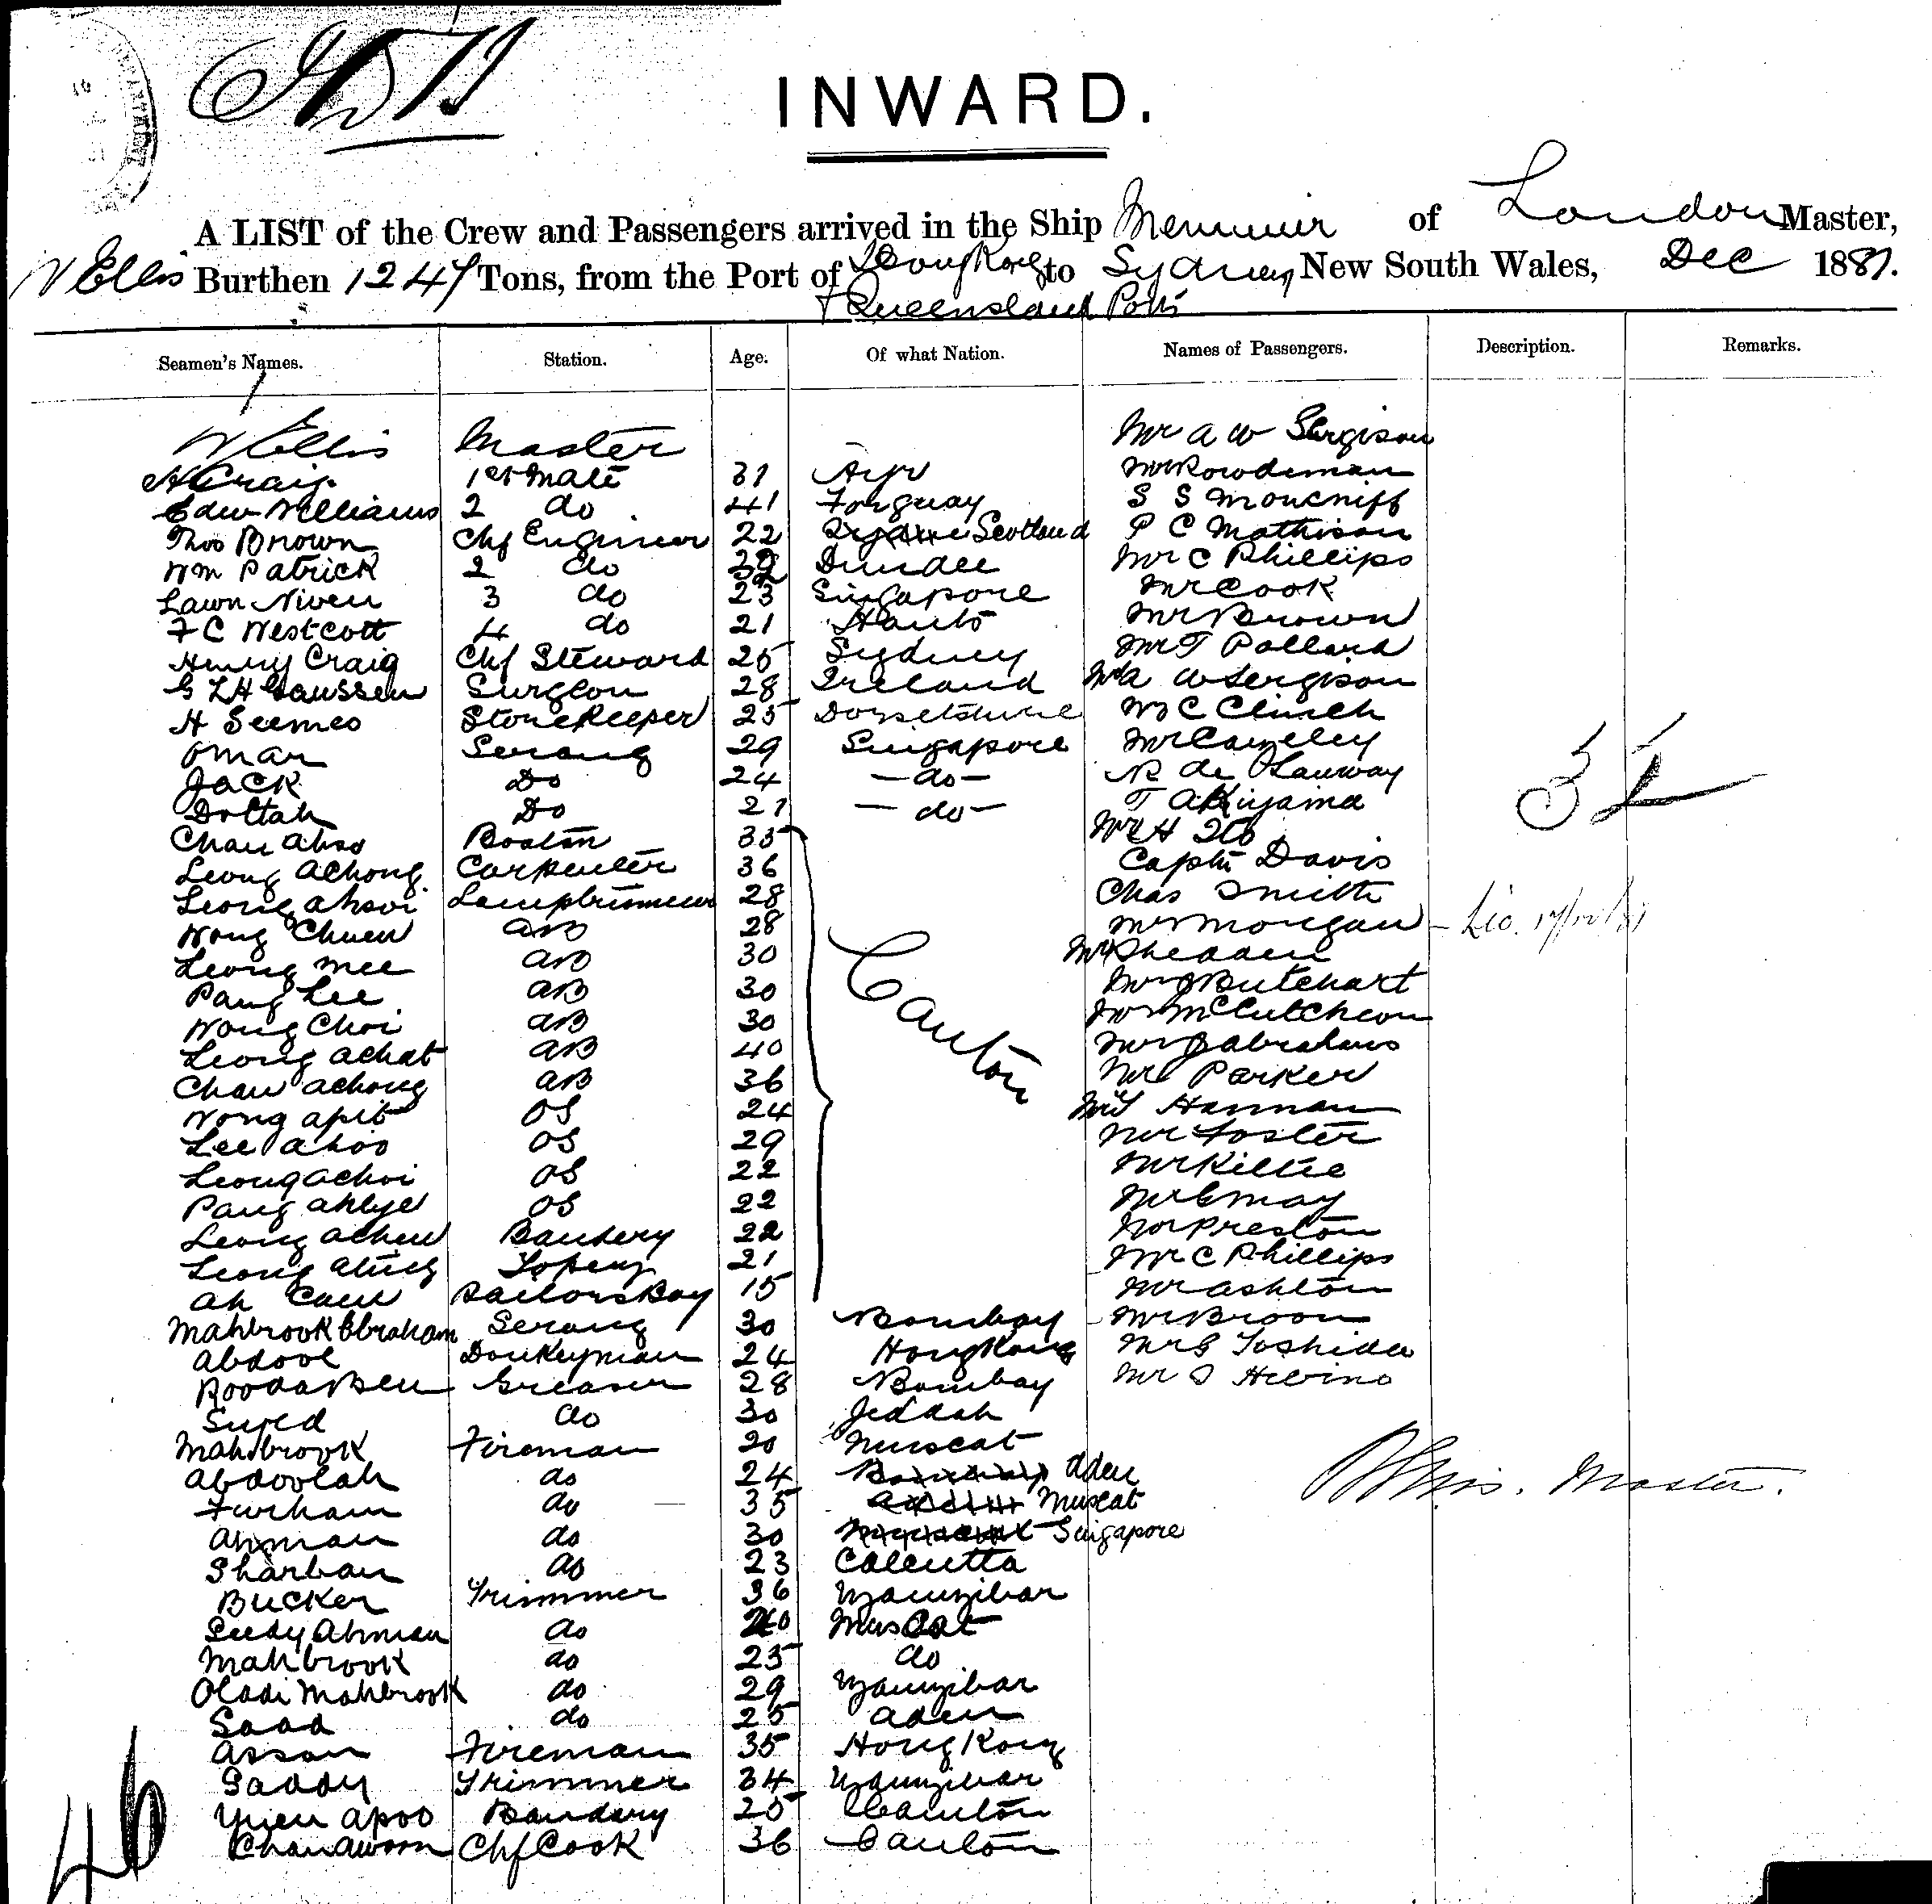 INWARD.
A LIST of the Crew and Passengers arrived in the Ship Memuir of London Master,
W Ellis Burthen 1247 Tons, from the Port of Hong Kong to Sydney New South Wales, Dec 1887.
+ Queensland Ports
Seamen's Names. Station. Age. Of what Nation. Names of Passengers. Description. Remarks.
W Ellis Master Mr A W Sergison
H Craig 1st Mate 31 Ayr Mr Rowdeman
Edw Williams 2 do 41 Torquay S S Moncriff
Thos Brown Chf Engineer 22 Scotland P C Mathison
Wm Patrick 2 do 32 Dundee Mr C Phillips
Lawn Niven 3 do 23 Singapore Mr Cook
F C Westcott 4 do 21 Hants Mr Brown
Henry Craig Chf Steward 25 Sydney Mr T Pollard
G L H Gaussen Surgeon 28 Ireland Mr A W Sergison
H Seemes Storekeeper 25 Dorsetshire C Clinch
Omar Serang 29 Singapore Mr Cayley
Jack Do 24 - do - R de Lauway
Doltah Do 21 - do - T Akiyama
Chau Ahso Boatn 35 Mr H Ito
Leong Achong Carpenter 36 Captn Davis
Leong Ahsoi Lamptrimmer 28 Chas Smith
Wong Chuen AB 28 Mr Morgan -
Leong Mee AB 30 Shedden
Pang Lee AB 30 Canton Mr J Butchart
Wong Choi AB 30 Mr McCutcheon
Leong Achat AB 40 Mr J Abrahams
Chau Achong AB 36 Mr Parker
Wong Apit OS 24 Hannan
Lee Ahoo OS 29 Mr Foster
Leong Achoi OS 22 Mr Kiltie
Pang Ahlye OS 22 Mr E May
Leong Achew Bandery 22 Mr Preston
Leong 21 Mr C Phillips
Ah Sailors Boy 15 Mr Ashton
Mahbrook Ebraham Serang 30 Bombay Mr Broom
Abdool Donkeyman 24 Hong Kong Mr S Yoshida
Rooda Ben Greaser 28 Bombay Mr Hebino
Suyed do 30 Jeddah
Mahbrook Fireman 20 Muscat
Abdoolah do 24 Bombay Aden
Furham do 35 Muscat
Ahman do 30 Muscat Singapore
Sharban do 23 Calcutta
Bucker Trimmer 36 Zanzibar
Seedy Ahman do 20 Muscat
Mahbrook do 25 do
Oladi Mahbrook do 29 Zanzibar
Saad do 25 Aden
Assan Fireman 35 Hong Kong
Saddy Trimmer 34 Zanzibar
Yuen Apoo Bandery 25 Canton
Chan Awoon Chf Cook 36 Canton
W Ellis. Master.
46